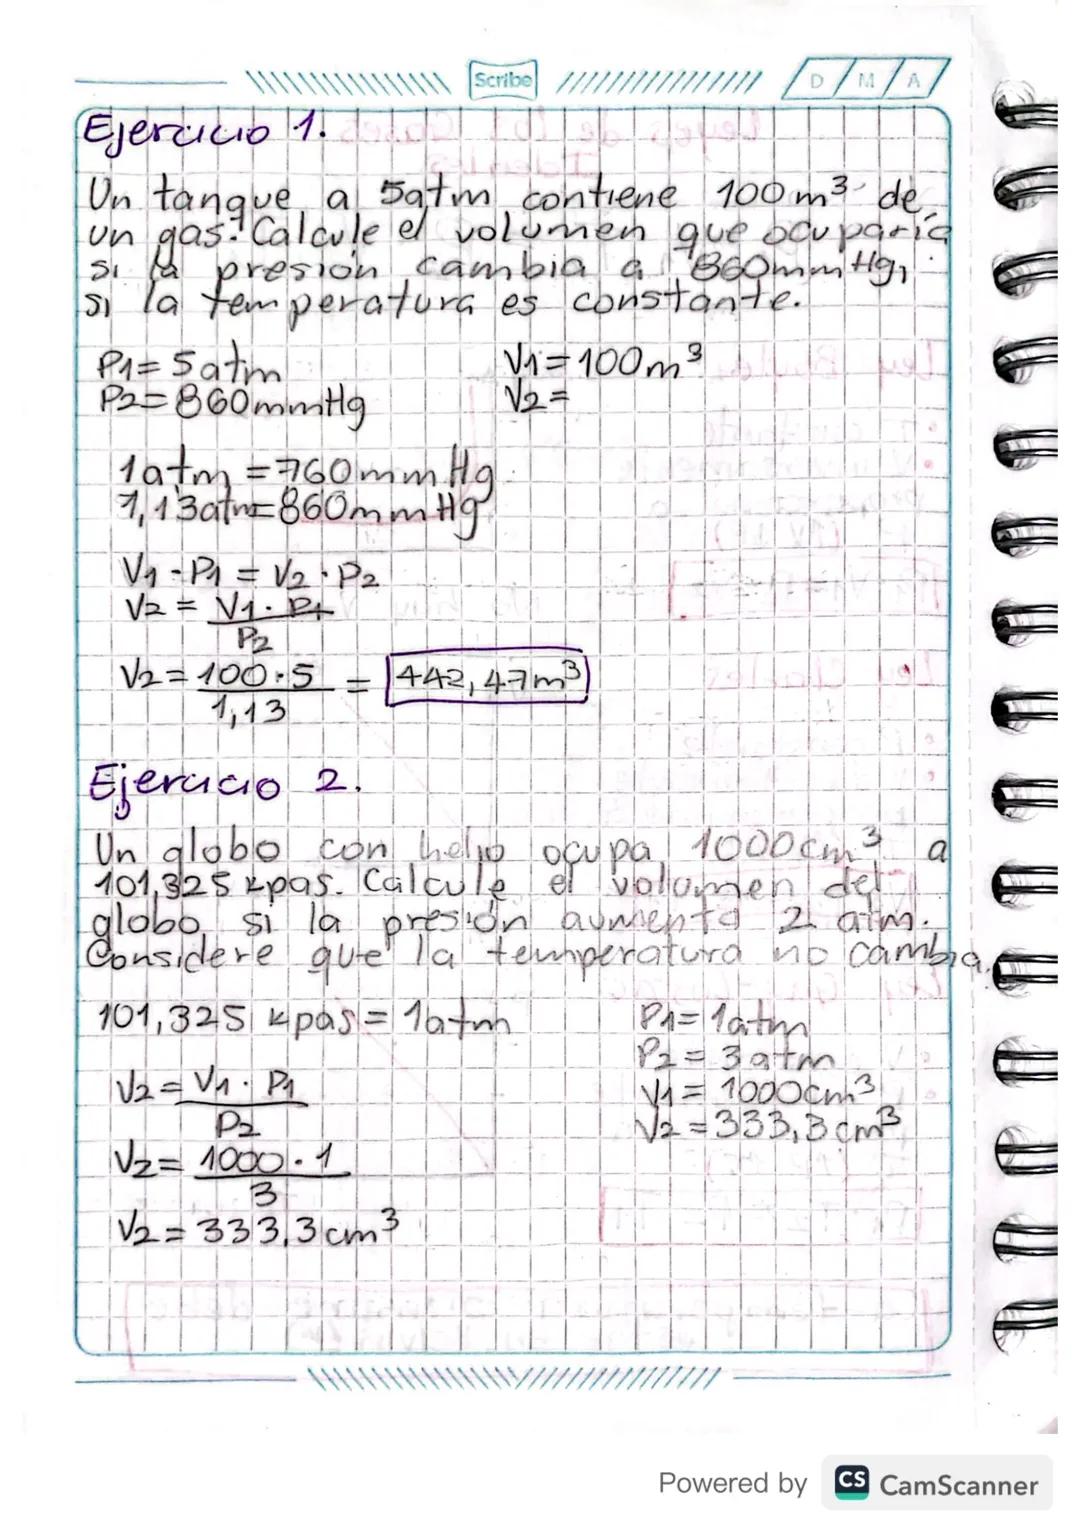 Scribe
D / M / A
Ejercicio 1.
Un tanque a 5atm contiene 100m³ de
un gas. Calcule el volumen que ocuparia
si la presión cambia a 860mmHg,
si la temperatura es constante.
P1= 5atm V1=100m³
P2=860mmHg V2=
1atm =760mmHg
1,13atm=860mmHg
V1·P1 = V2·P2
V2 = V1·P1
P2
V2= 100·5 = 442,47m³
1,13
Ejercicio 2.
Un globo con helio ocupa 1000cm³ a
101,325 kpas. Calcule el volumen del
globo, si la presión aumenta 2 atm.
Considere que la temperatura no cambia.
101,325 kpas= 1atm P1= 1atm
P2 = 3atm
V2= V1·P1 V1= 1000cm³
P2 V2=333,3cm³
V2= 1000·1
3
V2= 333,3cm³
Powered by CS CamScanner